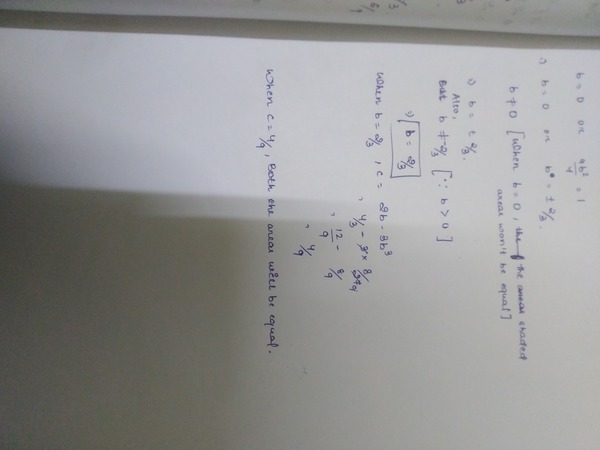 b = 0 or 9b²/4 = 1
⇒ b = 0 or b = ± 2/3.
b ≠ 0 [When b = 0, the the areas shaded
areas won't be equal]
⇒ b = ± 2/3.
Also,
But b ≠ -2/3 [∵ b > 0]
⇒ b = 2/3
When b = 2/3, c = 2b - 3b³
= 4/3 - 3 × 8/27 9
= 12/9 - 8/9
= 4/9
When c = 4/9, both the areas will be equal.